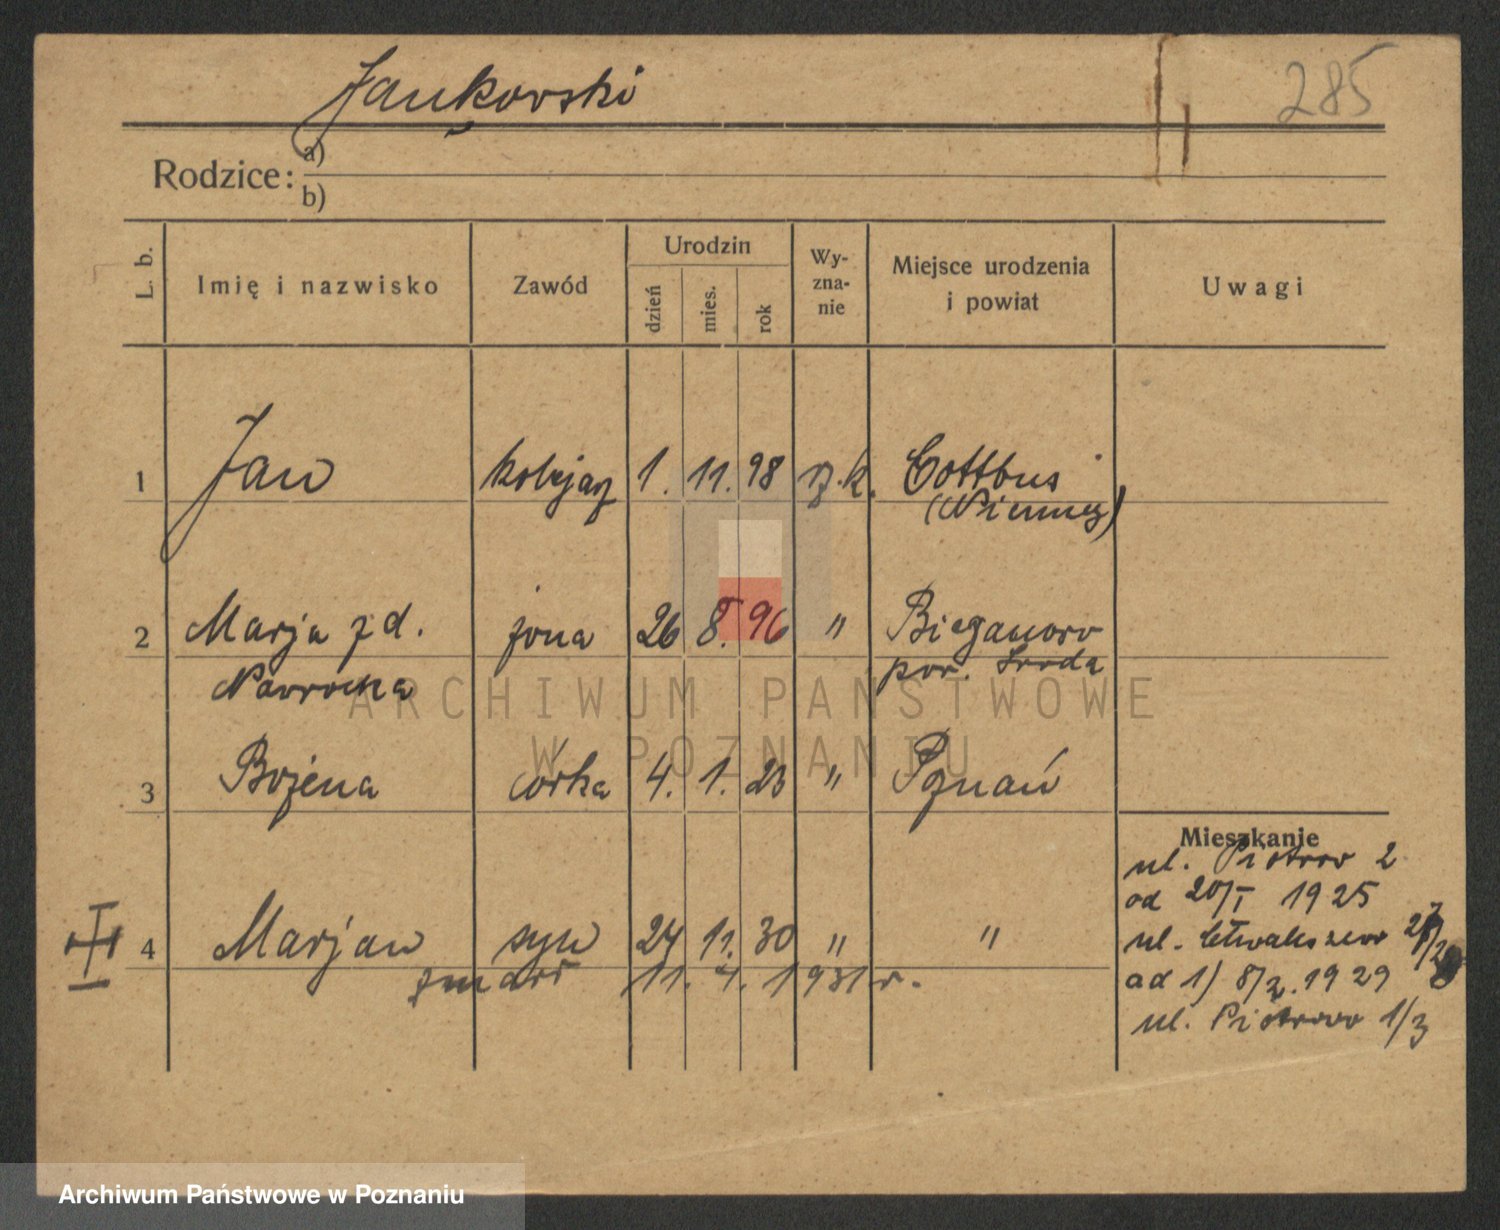 Jankowski
285
Rodzice:
a)
b)
L. b.
Imię i nazwisko
Zawód
Urodzin
dzień
mies.
rok
Wy-
zna-
nie
Miejsce urodzenia
i powiat
Uwagi
1 Jan kolejarz 1. 11. 98 rz. k. Cottbus
(Niemcy)
2 Marja z d. żona 26 8. 96 " Bieganowo
Nawrocka pow. Środa
3 Bożena córka 4. 1. 23 " Poznań
Mieszkanie
ul. Piotrowo 2
od 20/I 1925
4 Marjan syn 24 11. 30 " "
zmarł 11. 4. 1931 r.
ul.
od 1) 8/2. 1929
ul. Piotrowo 1/3
ARCHIWUM PAŃSTWOWE
W POZNANIU
Archiwum Państwowe w Poznaniu